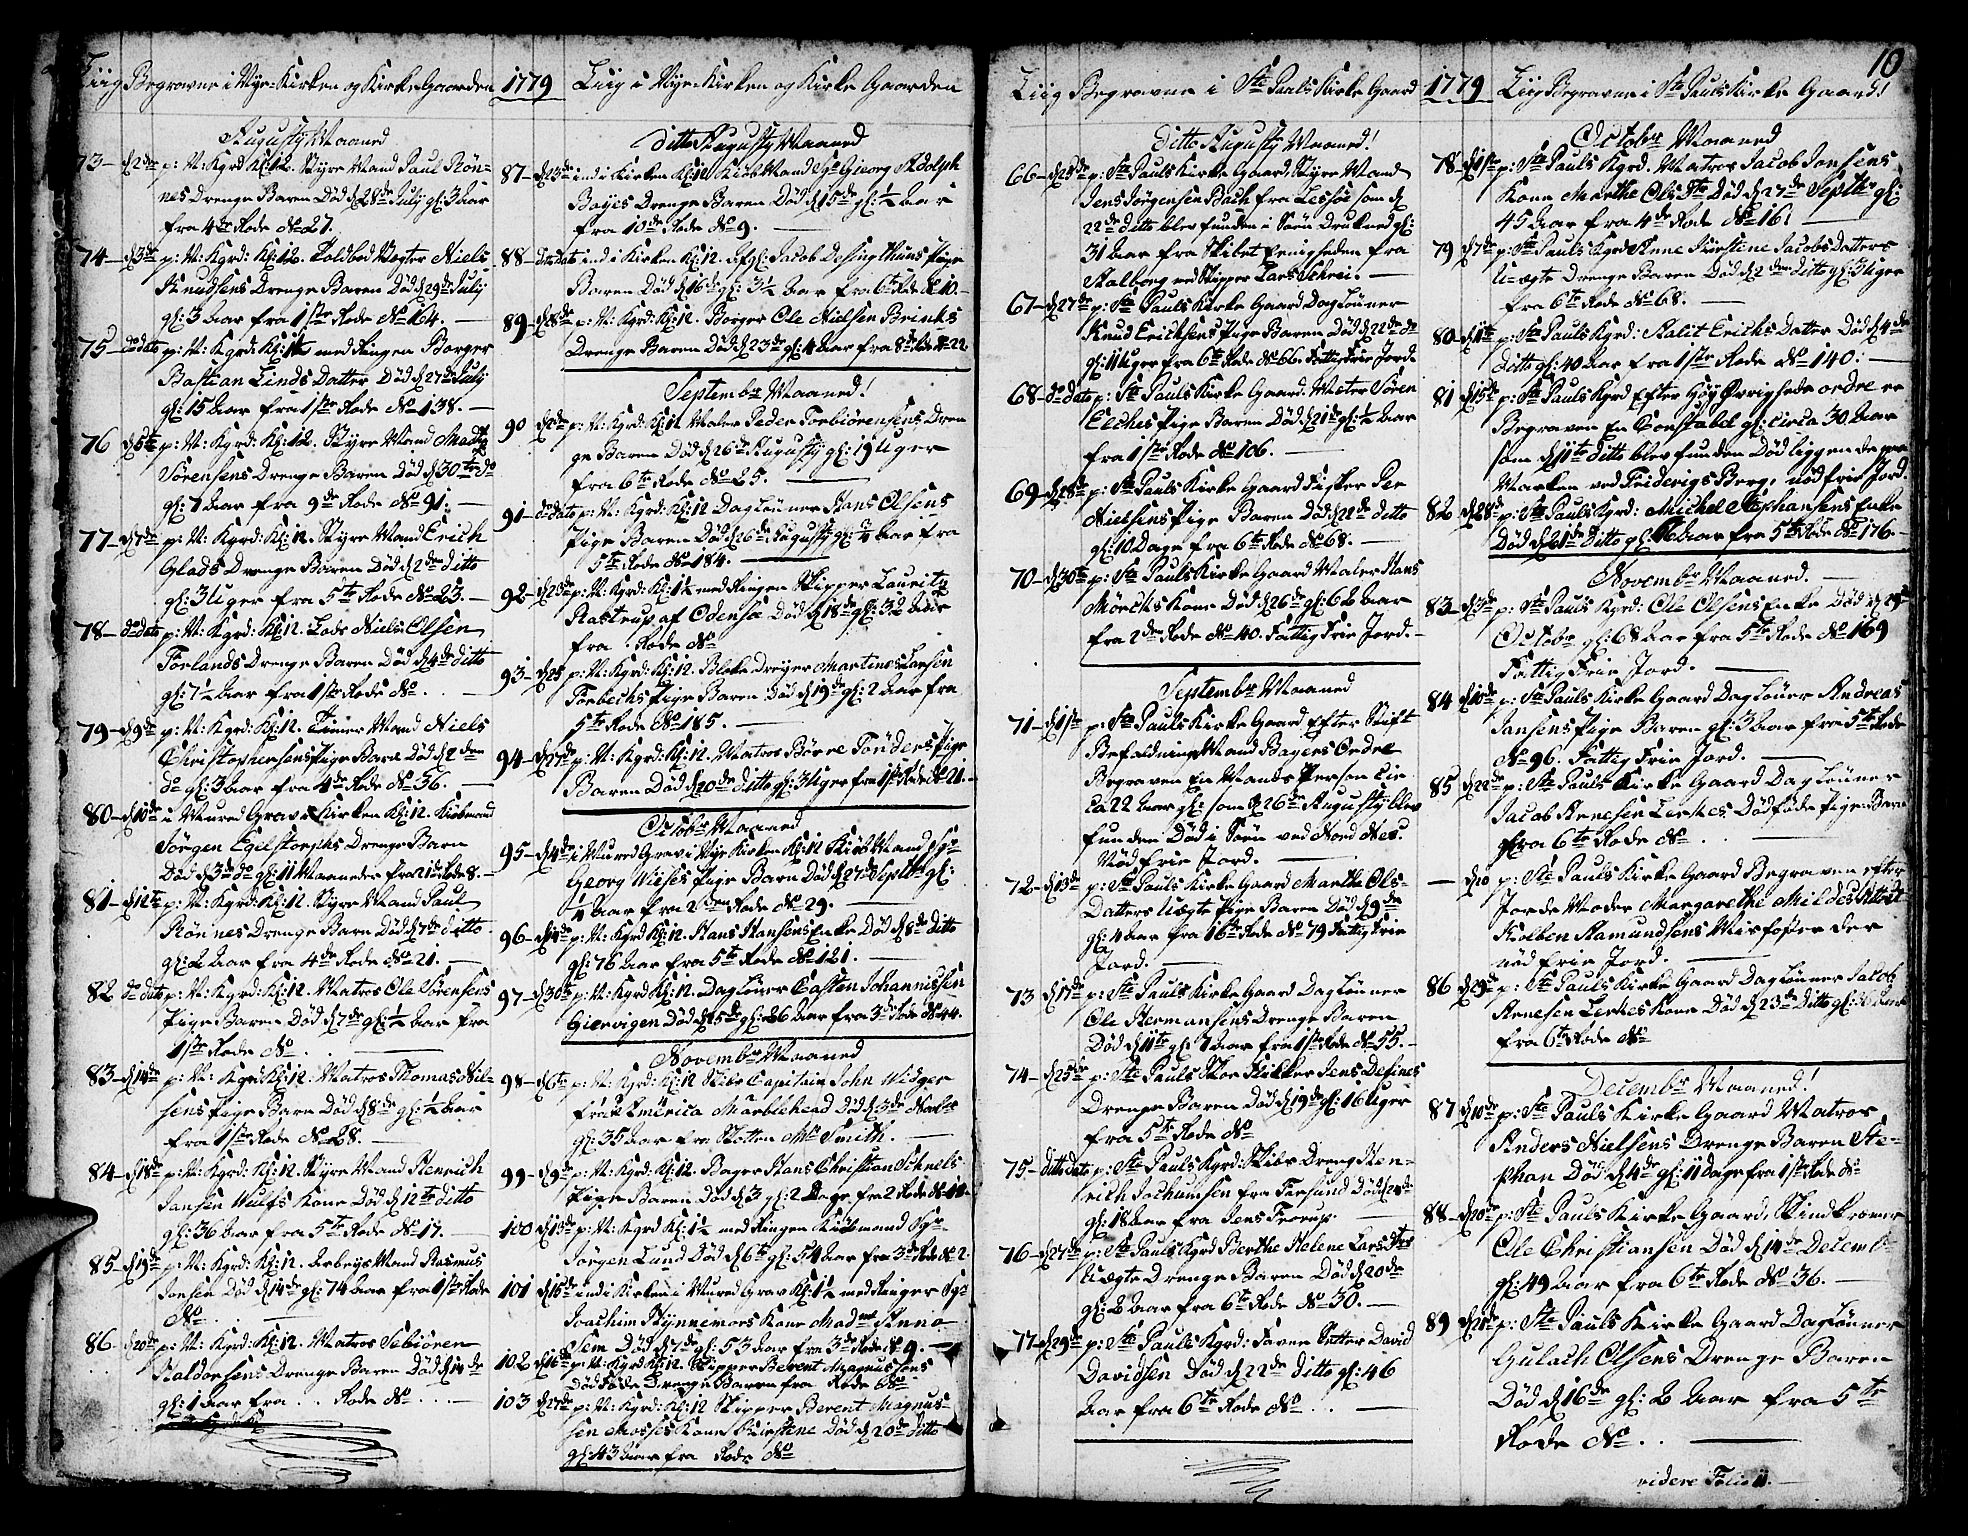 Liig Begravne i Nye-Kirken og Kirke Gaarden
Augusty Maaned
73- d 2de p: N: Kgrd Kl: 12. Styre Mand Paul Rön-
nes Drenge Baren Död d 28de July gl: 3 aar
fra 4de Rode No 27.
74- d 3de p: N: Kgrd: Kl: 12. Toldbod Vogter Niels
Knudsens Drenge Baren Död d 29de July
gl: 3 aar fra 1ste Rode No 164.
75- do dato p: N: Kgrd: Kl: 1½ med Ringen Borger
Bastian Linds Datter Död d 27de July
gl: 15 aar fra 1ste Rode No 138.
76 d 6te p: N: Kgrd: Kl: 12. Styre Mand Mads
Sörensens Drenge Baren Död d 30te do
gl: 7 aar fra 9de Rode No 91.
77- d 7de p: N: Kgrd: Kl: 12. Styre Mand Erich
Glads Drenge Baren Död d 2de ditto
gl: 3 Uger fra 5te Rode No 23.
78- do dato p: N: Kgrd: Kl: 12. Lods Niels Olsen
Forlands Drenge Baren Död d 4de ditto
gl: 7½ aar fra 1ste Rode No . .
79- d 9de p: N: Kgrd: Kl: 12. Timer Mand Niels
Christophersens Pige Barn Död d 2den
do gl: 3 aar fra 4de Rode No 36.
80- d 10de i Mured Grav i Kirken Kl: 12. Kiöbmand
Jörgen Egestorphs Drenge Barn
Död d 3de do gl: 11 Maaneder fra 21de Rode 8.
81- d 12te p: N: Kgrd: Kl: 12. Styre Mand Paul
Rönnes Drenge Barn Död d 7de ditto
gl: 2 aar fra 4de Rode No 21.
82 do dato p: N: Kgrd: Kl: 12. Matros Ole Sörensens
Pige Baren Död d 7de gl: ½ aar fra
1ste Rode No .
83- d 14de p: N: Kgrd Kl: 12. Matros Thomas Nil-
sens Pige Barn Död d 8de gl: ½ aar
fra 1ste Rode No 28.
84- d 18de p: N: Kgrd: Kl: 12. Styre Mand Henrich
Jansen Wulfs Kone Död d 12te ditto
gl: 36 aar fra 5te Rode No 17.
85- d 19de p: N: Kgrd: Kl: 12. Arbeys Mand Rasmus
Jonsen Död d 14de gl: 74 aar fra 1ste Rode
No . .
86 d 20de p: N: Kgrd: Kl: 12. Matros Sebiören
Haldorsens Drenge Baren Död d 14de
gl: 1 aar fra . . Rode No . . .
1779
Liig i Nye-Kirken og Kirke Gaarden
ditto Augusty Maaned
87- d 23de ind i Kirken Kl: 12 Kiöb Mand Sr Georg Adolph
Boyes Drenge Baren Död d 15de gl: ½ aar
fra 10de Rode No 9.
88- ditto dato ind i Kirken Kl: 12. Jacob De Pige
Baren Död d 16de gl: 3½ aar fra 6te Rode No 10.
89- d 28de p: N: Kgrd: Kl: 12. Borger Ole Nielsen Brinks
Drenge Baren Död d 23de gl: 4 aar fra 8de Rode No 22
Septembr Maaned!
90 d 2de p: N: Kgrd: Kl: 12 Maler Peder Torbiörnsens Dren
ge Baren Död d 26de Augusty gl: 19 Uger
fra 6te Rode No 25.
91- do dato p: N: Kgrd: Kl: 12 Daglöner Hans Olsens
Pige Baren Död d 26de Augusty gl: ¼ aar fra
5te Rode No 184.
92- d 23de p: N: Kgrd: Kl: 1½ med Ringen Skipper Lauritz
Rastrup af Odense Död d 18de gl: 32 aar
fra . Rode No
93- d 25 p: N: Kgrd: Kl: 12. Bloke Dreyer Martines Larsen
Torbechs Pige Baren Död d 19de gl: 2 aar fra
5te Rode No 185.
94- d 27de p: N: Kgrd: Kl: 12. Matros Börre Tönders Pige
Baren Död d 20de ditto gl: 3 Uger fra 1ste Rode No 21.
Octobr Maaned
95- d 4de i Mured Grav i Nye Kirken Kl: 12 Kiöb Mand Sr
Georg Wieses Pige Barn Död d 27de Septbr gl:
¼ aar fra 2den Rode No 29.
96- d 14de p: N: Kgrd Kl: 12. Hans Hansens Enke Död d 8de ditto
gl: 76 aar fra 5te Rode No 121.
97- d 30te p: N: Kgrd Kl: 12. Daglöner Casten Johannissen
Giervigen Död d 25de gl: 26 aar fra 3de Rode No 44.
Novembr Maaned
98- d 6te p: N: Kgrd: Kl: 12 Skibs Capitain John Widger
fra America Marblehead Död d 3de Novbr
gl: 35 aar fra Skotten Mr Smith.
99- d 9de p: N: Kgrd: Kl: 12. Bager Hans Christian Schnels
Pige Baren Död d 3 gl: 2 Dage fra 2 Rode No 18.
100 d 13de p: N: Kgrd Kl: 1½ med Ringen Kiöbmand Sr
Jörgen Lund Död d 6te gl: 54 aar fra 3de Rode No 2.
101 d 15de ind i Kirken i Mured Grav Kl: 1½ med Ringen Sr
Joachim Stynnemors Kone Madme Anna
Sem Död d 7de gl: 53 aar fra 3de Rode No 9.
102 d 16de p: N: Kgrd Kl: 12. Skipper Berent Magnussens
Död föde Drenge Baren fra Rode No
103 d 27de p: N: Kgrd: Kl: 12 Skipper Berent Magnus-
sen Mosses Kone Kirstine Död d 20de ditto
gl: 43 aar fra Rode No
10
Liig Begravne i Ste Pauls Kirke Gaard
ditto Augusty Maaned!
66- d 25de p: Ste Pauls Kirke Gaard Styre Mand
Jens Jörgensen Bach fra Lessöe som d
22de ditto blev funden i Söen Druknet gl:
31 aar fra Skibet Enigheden fra
Aalborg ved Skipper Lars Schrei.
67- d 27de p: Ste Pauls Kirke Gaard Daglönner
Knud Erichsens Pige Baren Död d 22de do
gl: 11 Uger fra 6te Rode No 66. Fattig Frie Jord.
68- do dato p: Ste Pauls Kirke Gaard. Meter Sören
Elches Pige Baren Död d 21de gl: ½ aar
fra 1ste Rode No 106.
69- d 28de p: Ste Pauls Kirke Gaard Fisker Per
Nielsens Pige Baren Död d 22de ditto
gl: 10 Dage fra 6te Rode No 68.
70- d 30te p: Ste Pauls Kirke Gaard Maler Hans
Mörchs Kone Död d 26de gl: 62 aar
fra 2den Rode No 40. Fattig Frie Jord.
Septembr Maaned
71- d 1ste p: Ste Pauls Kirke Gaard Efter Stift
Befalding Mand Bagers Ordre
Begraven En Mands Person Cir
ca 22 aar gl: som d 26de Augusty blev
funden Död i Söen ved Nord Nes.
Nöd frie Jord.
72- d 13de p: Ste Pauls Kirke Gaard Marthe Ols-
Datters Uægte Pige Baren Död d 9de
gl: 4 aar fra 16te Rode No 79 Fattig Frie
Jord.
73 d 17de p: Ste Pauls Kirke Gaard Daglönner
Ole Hermansens Drenge Baren
Död d 11te gl: 7 aar fra 1ste Rode No 55.
74- d 25de p: Ste Pauls Skoe Flikker Jens Desines
Drenge Baren Död d 19de gl: 16 Uger
fra 5te Rode No
75- ditto dato p: Ste Pauls Kgrd: Skibs Dreng Hen-
rich Jochumsen fra Fersund Död d 20de
gl: 18 aar fra Jens Trorup.
76- d 27de p: Ste Pauls Kgrd Berthe Helene Lars Dtr
Uægte Drenge Baren Död d 20de
gl: 2 aar fra 6te Rode No 30.
77- d 29de p: Ste Pauls Kgrd: Farver Sutter David
Davidsen Död d 22de ditto gl: 46
aar fra 6te Rode No . .
1779
Liig Begravne i Ste Pauls Kirke Gaard!
Octobr Maaned
78- d 1ste p: Ste Pauls Kgrd. Matros Jacob Jonsens
Kone Marthe Ols Dtr Död d 27de Septbr gl:
45 aar fra 4de Rode No 16.
79 d 7de p: Ste Pauls Kgrd Anne Kirstine Jacobs Datters
U-ægte Drenge Baren Död d 2den ditto gl: 3 Uger
fra 6te Rode No 68.
80- d 11te p: Ste Pauls Kgrd: Malit Erichs Datter Död d 4de
ditto gl: 40 aar fra 1ste Rode No 140.
81 d 15de p: Ste Pauls Kgrd Efter Höy Övrigheds ordre er
Begraven En Constabel gl: circa 30 aar
som d 11te ditto blev funden Död liggende paa
Marken ved Friderigs Berg. nöd frie Jord.
82 d 28de p: Ste Pauls Kgrd: Michel Stephansens Enke
Död d 21de ditto gl: aar fra 5te Rode No 176.
Novembr Maaned.
83- d 3de p: Ste Pauls Kgrd: Ole Olsens Enke Död d 29de
Octobr gl: 68 aar fra 5te Rode No 169
Fattig Frie Jord.
84 d 10de p: Ste Pauls Kirke Gaard Daglöner Andreas
Jansens Pige Baren gl: 3 aar fra 5te Rode
No 96. Fattig Frie Jord.
85 d 22de p: Ste Pauls Kirke Gaard Daglönner
Jacob Arnesen Lerkes Död föde Pige Barn
fra 6te Rode No . .
- d 20 p: Ste Pauls Kirke Gaard Begraven efter
Jorde Moder Margarethe Mildes Attest
Kolben Hamundsens Misfoster der
nöd frie Jord.
86 d 29de p: Ste Pauls Kirke Gaard Daglönner Jacob
Arnesen Lerkes Kone Död d 23de ditto gl: aar
fra 6te Rode No
Decembr Maaned!
87 d 10de p: Ste Pauls Kirke Gaard Matros
Anders Nielsens Drenge Baren Ste-
phan Död d 4de gl: 11 dage fra 1ste Rode No
88- d 20de p: Ste Pauls Kirke Gaard. Skindkremer
Ole Christiansen Död d 14de Decemb
gl: 49 aar fra 6te Rode No 36.
89 d 21de p: Ste Pauls Kirke Gaard Daglönner
Gulach Olsens Drenge Baren
Död d 16de gl: 2 aar fra 5te
Rode No . .
videre Folio 11.